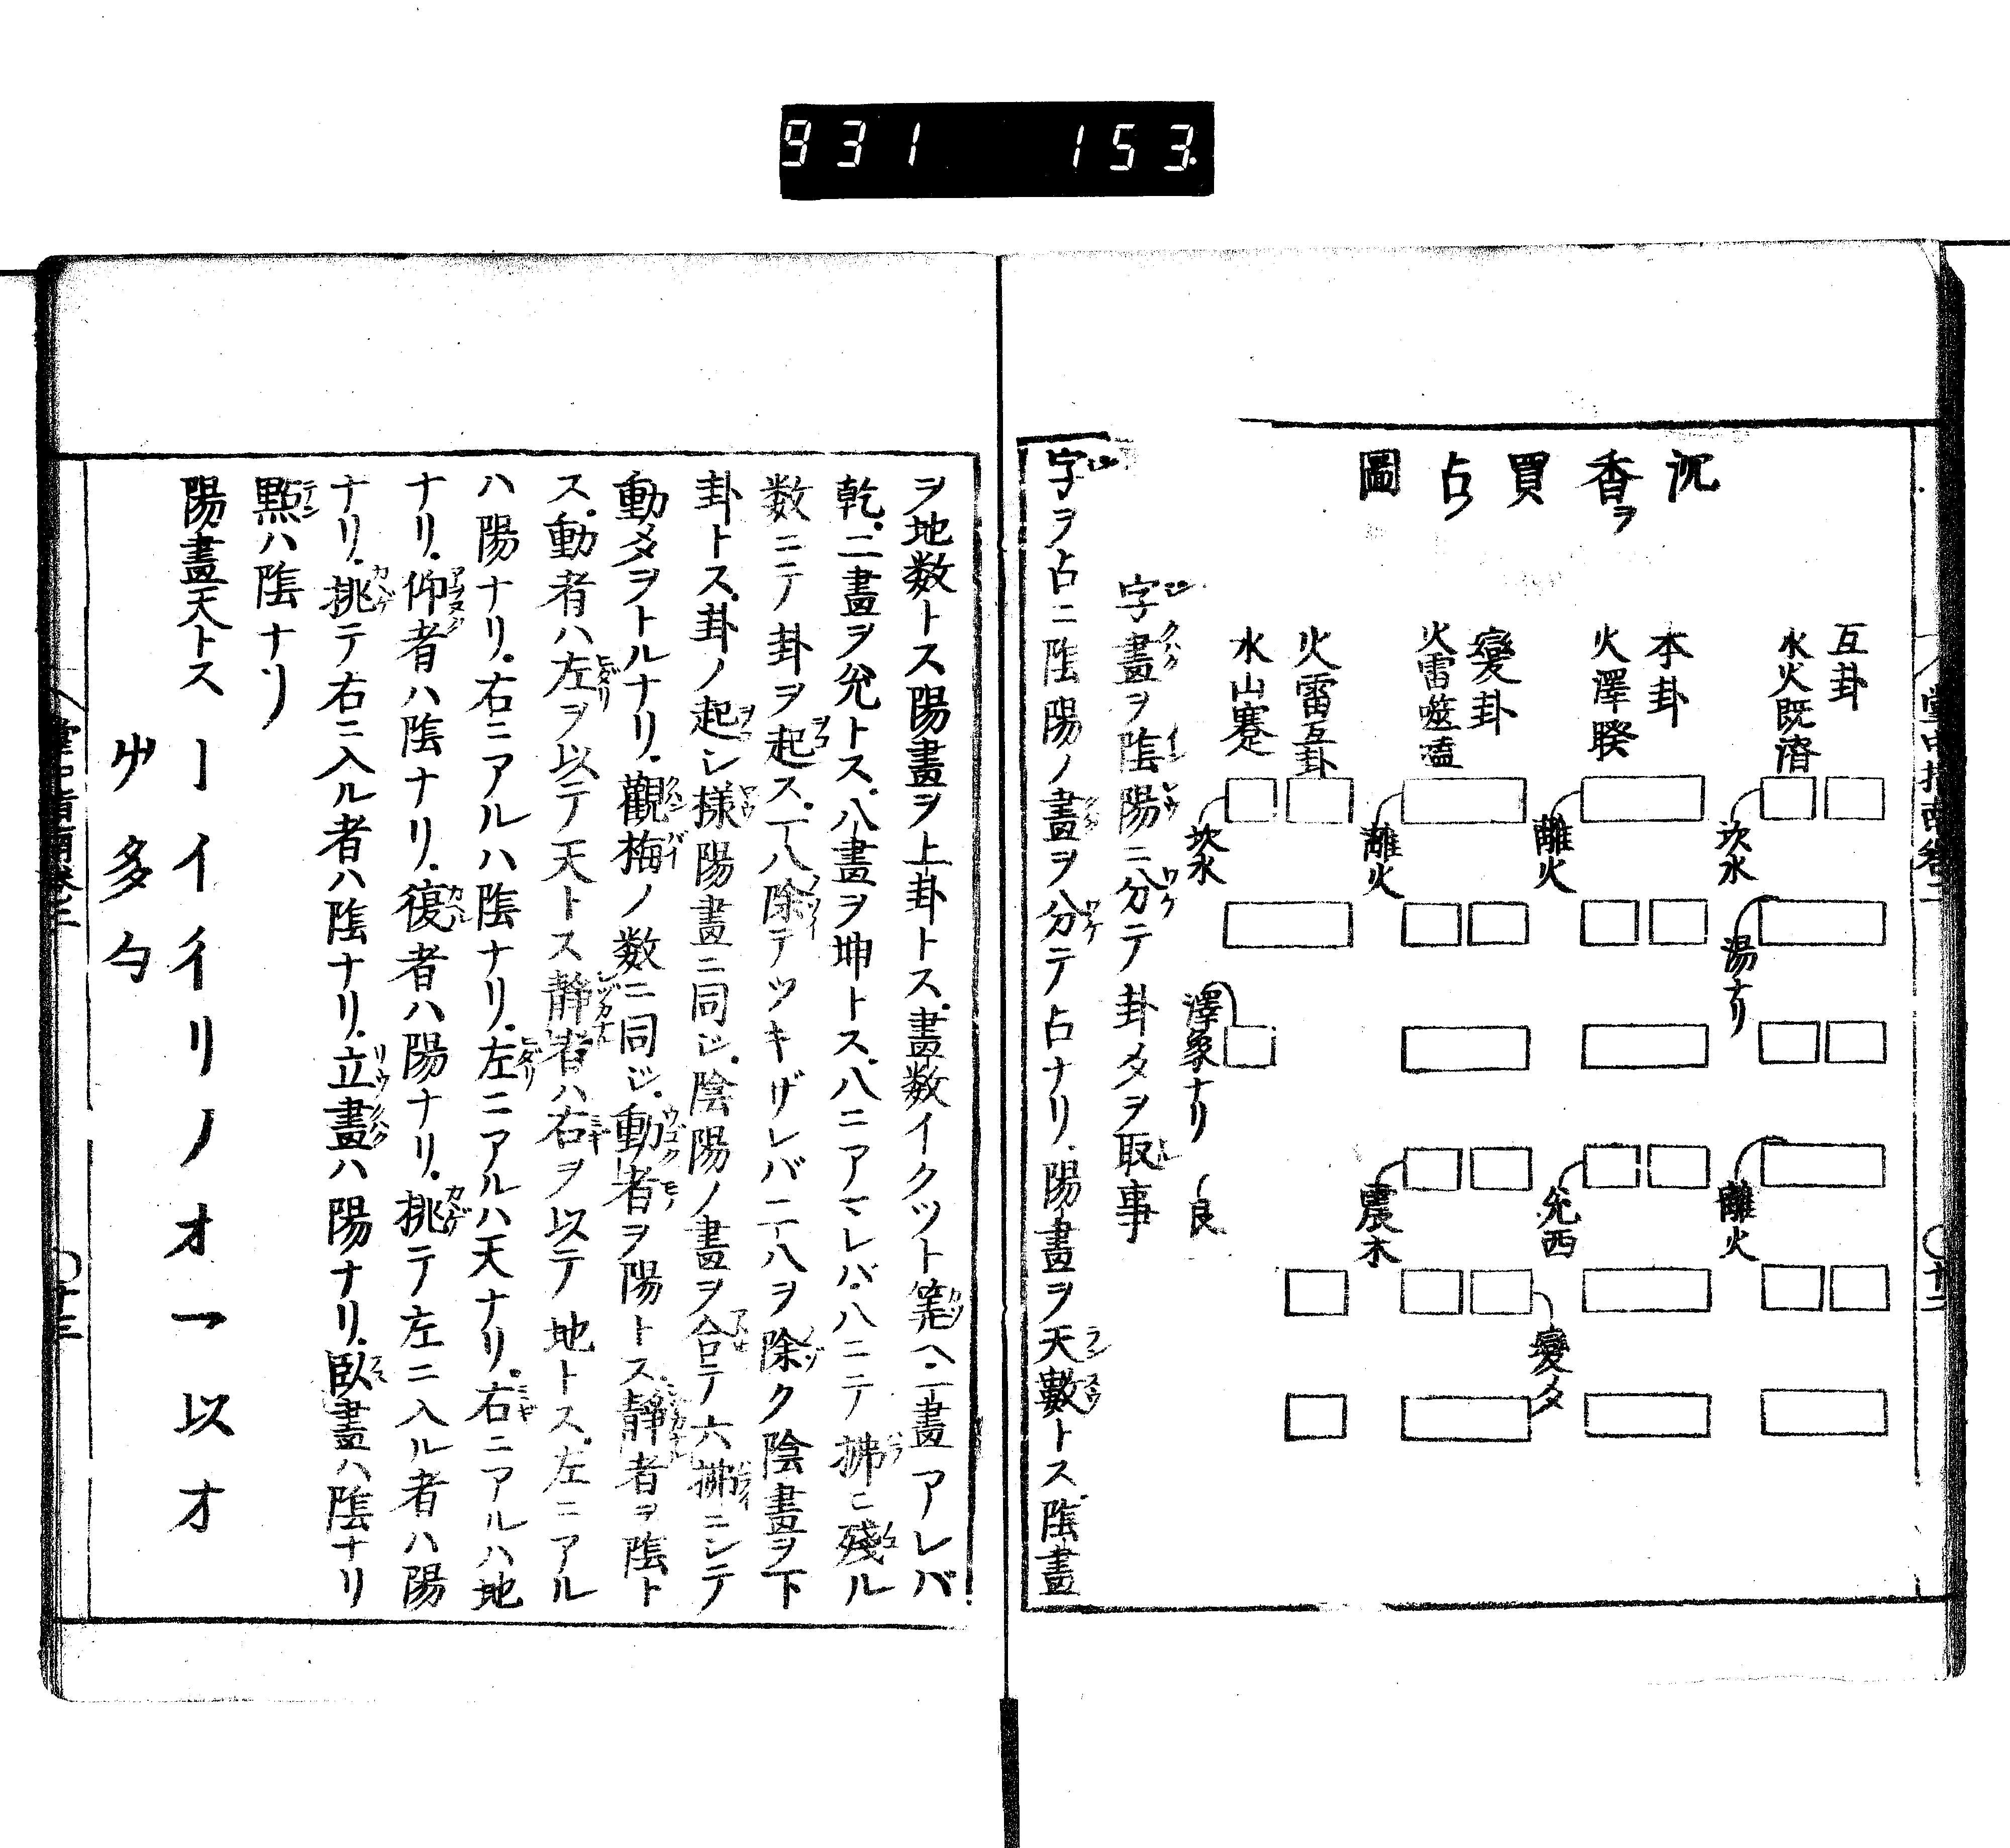 931 153
沉香ヲ買占圖
互卦
水火既濟
坎水
湯ナリ
離火
本卦
火澤睽
離火
兌西
變卦
火雷噬嗑
離火
震木
變タ
火雷互卦
水山蹇
坎水
澤象ナリ
艮
字畫ヲ陰陽ニ分テ卦タヲ取事
字ヲ占ニ陰陽ノ畫ヲ分テ占ナリ陽畫ヲ天數トス陰畫
ヲ地数トス陽畫ヲ上卦トス畫数イクツト筭へ一畫アレバ
乾二畫ヲ兌トス八畫ヲ坤トス八ニアマレバ八ニテ拂ヒ殘ル
数ニテ卦ヲ起ス一八除テツキザレバ二八ヲ除ク陰畫ヲ下
卦トス卦ノ起シ様陽畫ニ同シ陰陽ノ畫ヲ合テ六拂ニシテ
動爻ヲトルナリ觀梅ノ数ニ同シ動者ヲ陽トス静者ヲ陰ト
ス動者ハ左ヲ以テ天トス静者ハ右ヲ以テ地トス左ニアル
ハ陽ナリ右ニアルハ陰ナリ左ニアルハ天ナリ右ニアルハ地
ナリ仰者ハ陰ナリ復者ハ陽ナリ挑テ左ニ入ル者ハ陽
ナリ挑テ右ニ入ル者ハ陰ナリ立畫ハ陽ナリ臥畫ハ陰ナリ
點ハ陰ナリ
陽畫天トス 丨イ彳リノオ乛以才
多勹